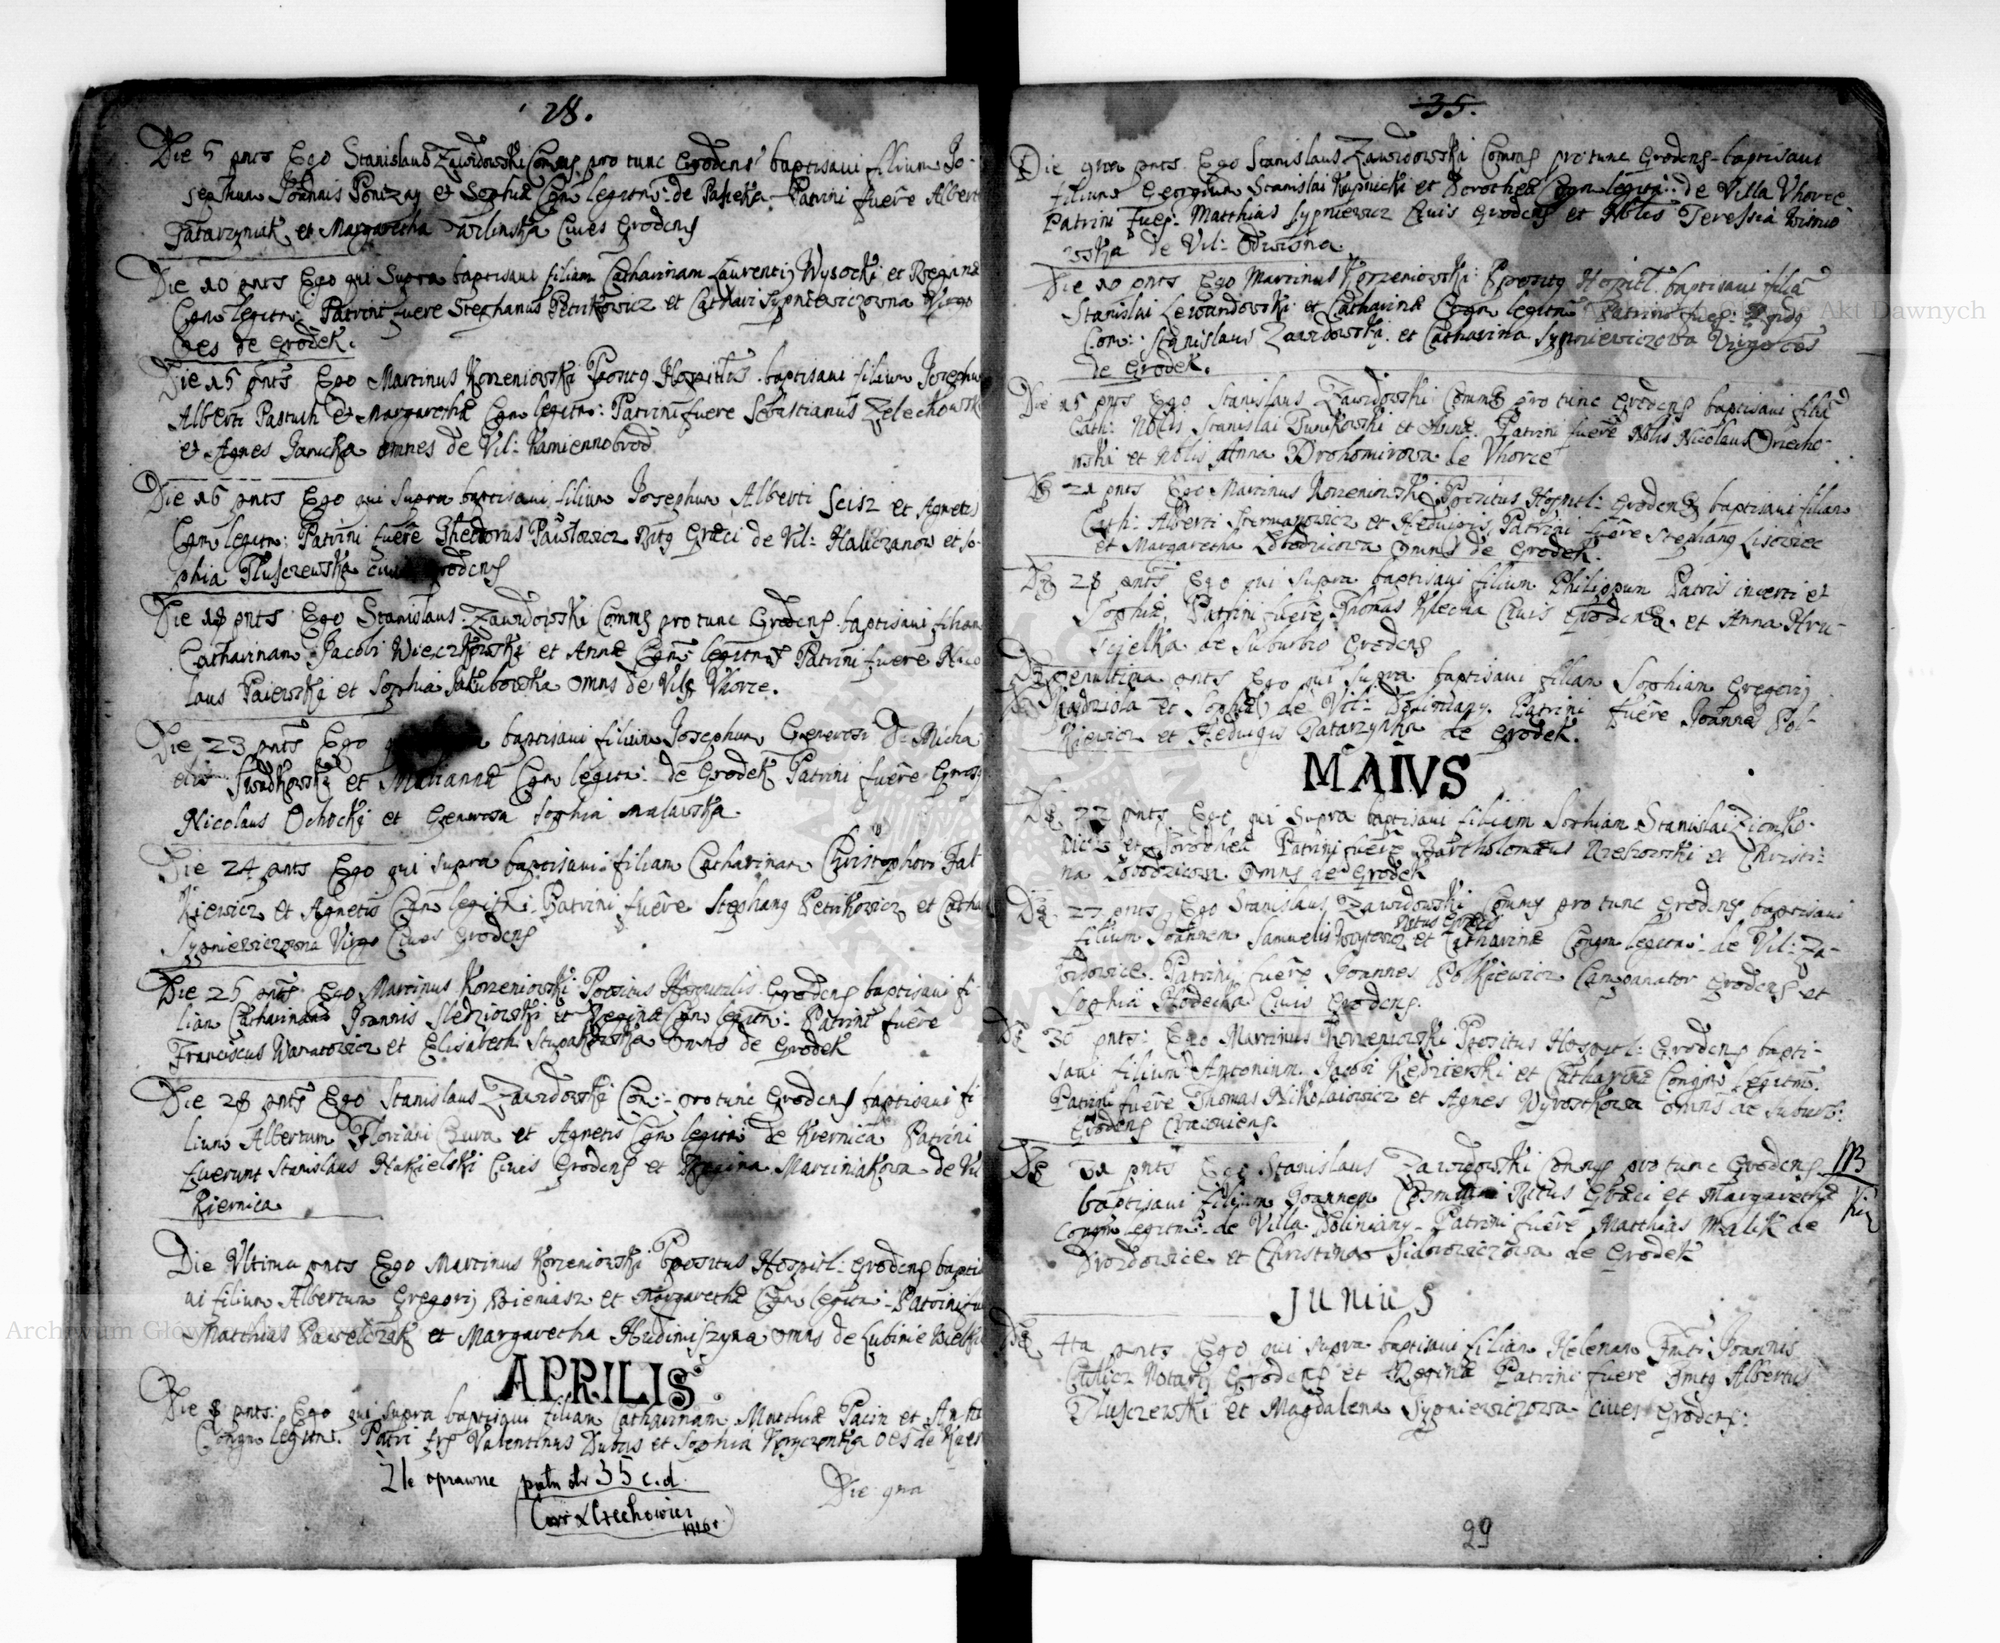 28.
Die 5 pnts Ego Stanislaus Zawidowski Comms pro tunc Grodens baptisavi filium Jo-
sephum Joannis Ponizay et Sophiæ Cgm legitm: de Pasieka. Patrini fuere Albert
Tatarzyniak et Margaretha Cives Grodens
Die 10 pnts Ego qui Supra baptisavi filiam Catharinam Laurentij Wysocki et Reginæ
Cgm legitm: Patrini fuere Stephanus Petrikowicz et Cathari Sypniewiczowna Virgo
Oes de Grodek.
Die 15 pnts Ego Martinus Korzeniowski Ppositq Hospitlis baptisavi filium Josephum
Alberti Pastuch et Margarethæ Cgm legitm: Patrini fuere Sebastianus Zelechowsk
et Agnes Janicka omnes de Vil: Kamiennobrod
Die 16 pnts Ego qui Supra baptisavi filium Josephum Alberti Scisz et Agnetis
Cgm legitm: Patrini fuere Thedorus Pawlowicz Ritq Græci de Vil: Haliczanow et So-
phia Tluszczewska Grodens
Die 18 pnts Ego Stanislaus Zawidowski Comms pro tunc Grodens baptisavi filiam
Catharinam Jacobi Wieczkowski et Annæ Cgm: legitm Patrini fuere Nico
laus Paiewski et Sophia Jakubowska omns de Vils Vhorce.
Die 23 pnts Ego baptisavi filium Josephum Generosi D. Micha
elis et Mariannæ Cgm legitm: de Grodek Patrini fuere Gnrosq
Nicolaus Ochocki et Generosa Sophia Malawska
Die 24 pnts Ego qui supra baptisavi filiam Catharinam Christophori Fal
kiewicz et Agnetis Cgm legitm: Patrini fuere Stephanq Petrikowicz et Catha
Sypniewiczowna Virgo Cives Grodens
Die 25 pnts Ego Martinus Korzeniowski Ppositus Hospitalis Grodens baptisavi fi-
liam Catharinam Joannis Sledziowski et Reginæ Cgm legitm: Patrini fuere
Franciscus Wanatowicz et Elisabeth Stupakowska omns de Grodek
Die 28 pnts Ego Stanislaus Zawidowski Com: pro tunc Grodens baptisavi fi-
lium Albertum Floriani Bura et Agnetis Cgm legitm de Kiernica Patrini
fuerunt Stanislaus Hakielski Civis Grodens et Regina Marciniakowa de Vil
Kiernica
Die Vltima pnts Ego Martinus Korzeniowski Ppositus Hospitl: Grodens baptis
vi filium Albertum Gregorij Bieniasz et Margarethæ Cgm legitm: Patrini fu
Matthias Pawelczak et Margaretha omns de Lubinie
APRILIS
Die 8 pnts: Ego qui supra baptisavi filiam Catharinam Mathiæ Pacin et
Congm legitm: Patri frs Valentinus Dubas et Sophia oes de
Źle oprawne patrz str 35 c.d.
Czechowicz
1916 r
Die 9na
35.
Die 9na pnts Ego Stanislaus Zawidowski Comms pro tunc Grodens baptisavi
filium Georgium Stanislai Kupnicki et Dorotheæ Cgm legitm: de Villa Vhorce
Patrini fuer: Matthias Sypniewicz Civis Grodens et Nobles Teressia Wisnio
wska de Vil: Odwisna
Die 10 pnts Ego Martinus Korzeniowski Ppositq Hospitl: baptisavi filiã
Stanislai Lewandowski et Catharinæ Cogm legitm Patrini fuer:
Com: Stanislaus Zawidowski et Catharina Sypniewiczowa Virgo oes
de Grodek.
Die 15 pnts Ego Stanislaus Zawidowski Comms pro tunc Grodens baptisavi filiã
Cath: Nobles Stanislai Punikowski et Annæ Patrini fuere Nobles Nicolaus Orzecho-
wski et Noblis Anna Drohomirowa de Vhorce
De 21 pnts Ego Martinus Korzeniowski Ppositus Hospitl: Grodens baptisavi filiam
Cath: Alberti Szermanowicz et Hedvigis Patrini fuere Stephanq Lisowiec
et Margaretha Lobodzicowa omns de Grodek.
De 28 pnts Ego qui Supra baptisavi filium Philippum Patris incerti et
Sophiæ, Patrini fuere Thomas Klecha Civis Grodens et Anna Hru-
scielka de Suburbio Grodens
De Penultima pnts Ego qui Supra baptisavi filiam Sophiam Gregorij
Kadziola et Sophiæ de Vil: Doliniany. Patrini fuere Joannes Pol-
kiewicz et Hedvigis Tatarzynka de Grodek.
MAIVS
De 22 pnts Ego qui Supra baptisavi filiam Sophiam Stanislai Ziomko-
wicz et Dorotheæ Patrini fuere Bartholomæus Rzebowski et Christi-
na Lobodzicowa omns de Grodek
De 27 pnts Ego Stanislaus Zawidowski Comms pro tunc Grodens baptisavi
Ritus Græci
filium Joannem Samuelis Woytowicz et Catharinæ Congm legitm: de Vil: Za-
widowice. Patrini fuere Joannes Polkiewicz Campanator Grodens et
Sophia Hodecka Civis Grodens.
De 30 pnts: Ego Martinus Korzeniowski Ppositus Hospitl: Grodens bapti-
savi filium Antonium Jacobi Kedzierski et Catharinæ Congm legitm:
Patrini fuere Thomas Nikolaiowicz et Agnes Wyrostkowa omns de Suburb:
Grodens Cracoviens.
De 31 pnts Ego Stanislaus Zawidowski Comms pro tunc Grodens
baptisavi filium Joannem Ritus Græci et Margarethæ
Congm legitm: de Villa Doliniany. Patrini fuere Matthias Malik de
Drozdowice et Christina Sidorowiczowa de Grodek
NB
JUNIUS
De 4ta pnts Ego qui supra baptisavi filiam Helenam Fmti Joannis
Notarij Grodens et Reginæ Patrini fuere Fmtq Albertus
Tluszczewski et Magdalena Sypniewiczowa cives Grodens:
29
Archiwum Główne Akt Dawnych